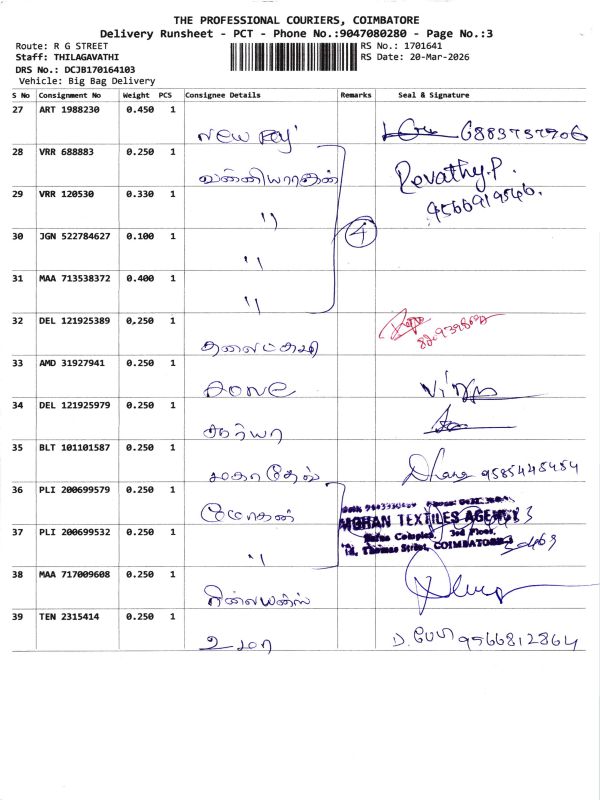 THE PROFESSIONAL COURIERS, COIMBATORE
Delivery Runsheet - PCT - Phone No.:9047080280 - Page No.:3
Route: R G STREET
RS No.: 1701641
Staff: THILAGAVATHI
RS Date: 20-Mar-2026
DRS No.: DCJB170164103
Vehicle: Big Bag Delivery
S No Consignment No Weight PCS Consignee Details Remarks Seal & Signature
27 ART 1988230 0.450 1
New
28 VRR 688883 0.250 1
Revathy.P.
29 VRR 120530 0.330 1
"
30 JGN 522784627 0.100 1
④
"
31 MAA 713538372 0.400 1
"
32 DEL 121925389 0.250 1
33 AMD 31927941 0.250 1
34 DEL 121925979 0.250 1
சூர்யா
35 BLT 101101587 0.250 1
9585445454
36 PLI 200699579 0.250 1
மோகன்
MOHAN TEXTILES AGENCY
Complex, 3rd Floor,
Thomas Street, COIMBATORE
37 PLI 200699532 0.250 1
"
38 MAA 717009608 0.250 1
ரிலையன்ஸ்
39 TEN 2315414 0.250 1
உமா
9566812864